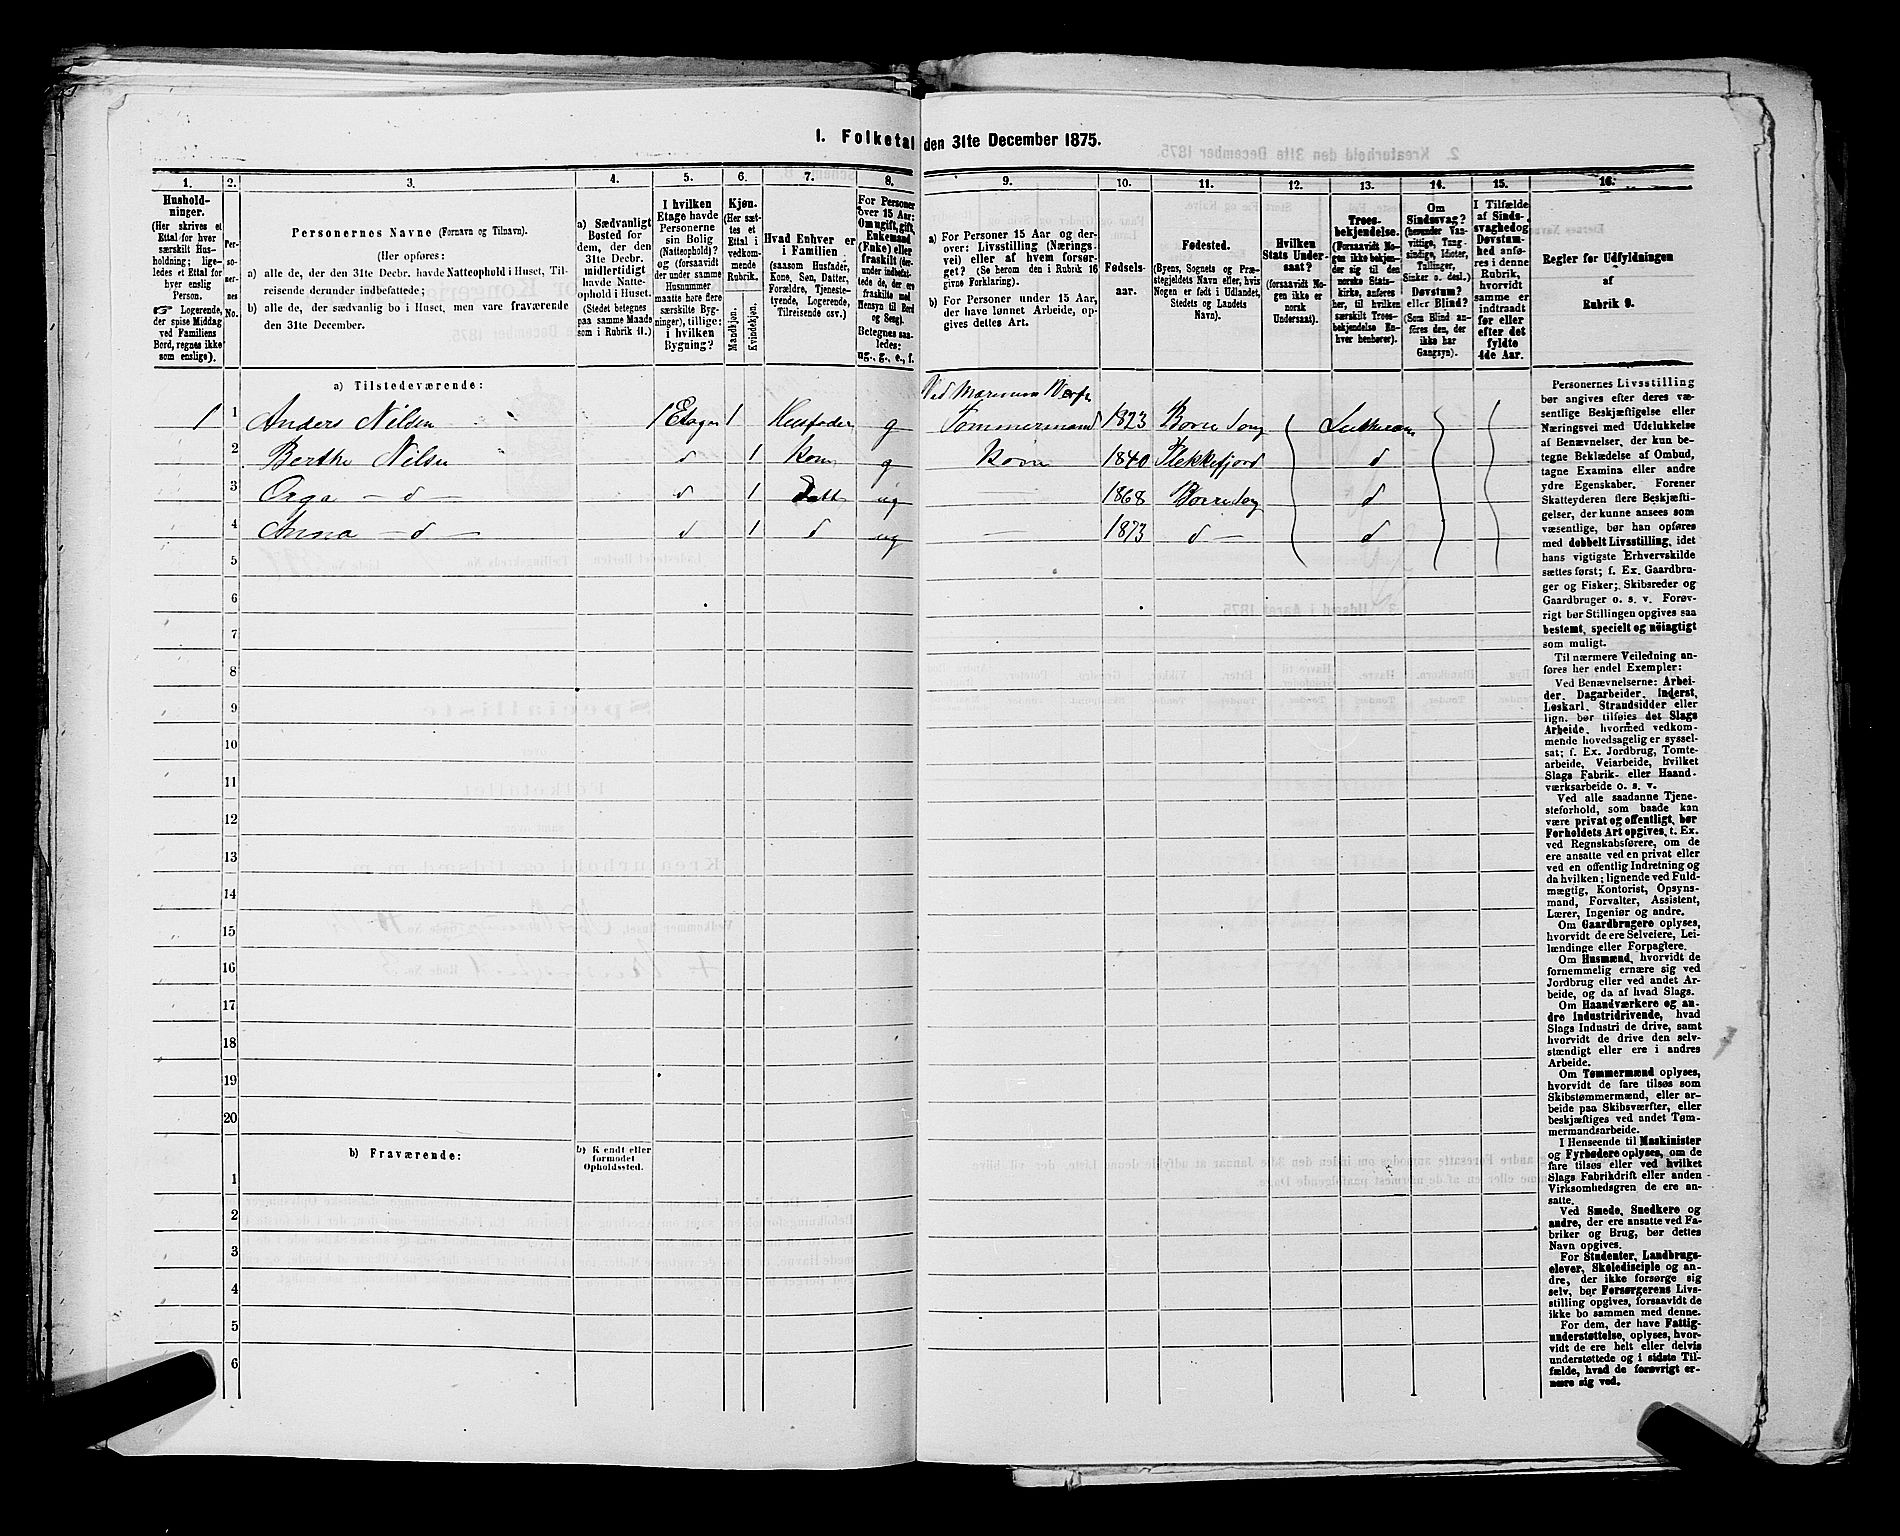 1. Folketal den 31te December 1875.
1. 2. 3. 4. 5. 6. 7. 8. 9. 10. 11. 12. 13. 14. 15. 16.
Hushold-
ninger.
(Her skrives et
Ettal for hver
særskilt Hus-
holdning; lige-
ledes et Ettal for
hver enslig
Person.
☞ Logerende,
der spise Middag
ved Familiens
Bord, regnes ikke
som enslige).
Per-
so-
ner-
nes
No.
Personernes Navne (Fornavn og Tilnavn).
(Her opføres:
a) alle de, der den 31te Decbr. havde Natteophold i Huset, Til-
reisende derunder indbefattede;
b) alle de, der sædvanlig bo i Huset, men vare fraværende
den 31te December.
a) Sædvanligt
Bosted for
dem, der den
31te Decbr.
midlertidigt
havde Natte-
ophold i Huset.
(Stedet betegnes
paa samme Maade
som i Rubrik 11.)
I hvilken
Etage havde
Personerne
sin Bolig
(Natteophold)?
og (forsaavidt
der under samme
Husnummer
maatte høre flere
særskilte Byg-
ninger), tillige:
i hvilken
Bygning?
Kjøn.
(Her sæt-
tes et
Ettal i
vedkom-
mende
Rubrik.
Mandkjøn.
Kvindekjøn.
Hvad Enhver er
i Familien
(saasom Husfader,
Kone, Søn, Datter,
Forældre, Tjeneste-
tyende, Logerende,
Tilreisende osv.)
For Personer
over 15 Aar:
Om ugift, gift,
Enkemand
(Enke) eller
fraskilt (der-
under indbefat-
tede de, der ere
fraskilte med
Hensyn til Bord
og Seng).
Betegnes saa-
ledes:
ug., g., e., f.
a) For Personer 15 Aar og der-
over: Livsstilling (Nærings-
vei) eller af hvem forsør-
get? (Se herom den i Rubrik 16
givne Forklaring).
b) For Personer under 15 Aar,
der have lønnet Arbeide, op-
gives dettes Art.
Fødsels-
aar.
Fødested.
(Byens, Sognets og Præ-
stegjeldets Navn eller, hvis
Nogen er født i Udlandet,
Stedets og Landets
Navn).
Hvilken
Stats Under-
saat?
(forsaavidt No-
gen ikke er
norsk
Undersaat).
Troes-
bekjendelse.
(Forsaavidt No-
gen ikke bekjen-
der sig til den
norske Stats-
kirke, anføres
her, til hvilken
særskilt Troes-
bekjendelse En-
hver henhører).
Om
Sindssvag?
(herunder Van-
vittige, Tung-
sindige, Idioter,
Tullinger,
Sinker o. desl.)
Døvstum?
eller Blind?
(Som Blind an-
føres den, der
ikke har
Gangsyn).
I Tilfælde
af Sinds-
svaghed og
Døvstum-
hed anfø-
res i denne
Rubrik,
hvorvidt
samme er
indtraadt
før eller
efter det
fyldte
4de Aar.
Regler for Udfyldningen
af
Rubrik 9.
a) Tilstedeværende:
Ved
1 1 Anders Nilsen 1 Etage 1 Husfader g Tømmermand 1823
2 Berthe Nilsen d 1 Kone g Kone 1840 Flekkefjord d
3 d d 1 Datt ug 1868 d
4 Anna d d 1 d ug 1873 d d
5
6
7
8
9
10
11
12
13
14
15
16
17
18
19
20
b) Fraværende:
b) Kendt eller
formodet
Opholdssted.
1
2
3
4
5
6
Personernes Livsstilling
bør angives efter deres væ-
sentlige Beskjæftigelse eller
Næringsvei med Udelukkelse
af Benævnelser, der kun be-
tegne Beklædelse af Ombud,
tagne Examina eller andre
ydre Egenskaber. Forener
Skatteyderen flere Beskjæfti-
gelser, der kunne ansees som
væsentlige, bør han opføres
med dobbelt Livsstilling, idet
hans vigtigste Erhvervskilde
sættes først; f. Ex. Gaardbru-
ger og Fisker; Skibsreder og
Gaardbruger o. s. v. Forøv-
rigt bør Stillingen opgives saa
bestemt, specielt og nøiagtigt
som muligt.
Til nærmere Veiledning an-
føres her endel Exempler:
Ved Benævnelserne: Arbei-
der, Dagarbeider, Inderst,
Løskarl, Strandsidder eller
lign. bør tilføies det Slags
Arbeide, hvormed vedkom-
mende hovedsagelig er syssel-
sat; f. Ex. Jordbrug, Tomte-
arbeide, Veiarbeide, hvilket
Slags Fabrik- eller Haand-
værksarbeide o. s. v.
Ved alle saadanne Tjene-
steforhold, som baade kan
være privat og offentligt, bør
Forholdets Art opgives, t. Ex.
ved Regnskabsførere, om de
ere ansatte ved en privat eller
ved en offentlig Indretning og
da hvilken; lignende ved Fuld-
mægtig, Kontorist, Opsyns-
mand, Forvalter, Assistent,
Lærer, Ingeniør og andre.
Om Gaardbrugere oplyses,
hvorvidt de ere Selveiere, Lei-
lændinge eller Forpagtere.
Om Husmænd, hvorvidt de
fornemmelig ernære sig ved
Jordbrug eller ved andet Ar-
beide, og da af hvad Slags.
Om Haandværkere og an-
dre Industridrivende, hvad
Slags Industri de drive, samt
hvorvidt de drive den selv-
stændigt eller ere i andres
Arbeide.
Om Tømmermænd oplyses,
hvorvidt de fare tilsøs som
Skibstømmermænd, eller ar-
beide paa Skibsværfter, eller
beskjæftiges ved andet Tøm-
mermandsarbeide.
I Henseende til Maskinister
og Fyrbødere oplyses, om de
fare tilsøs eller ved hvilket
Slags Fabrikdrift eller anden
Virksomhedsgren de ere an-
satte.
Ved Smede, Snedkere og
andre, der ere ansatte ved Fa-
briker og Brug, bør dettes
Navn opgives.
For Studenter, Landbrugs-
elever, Skoledisciple og an-
dre, der ikke forsørge sig
selv, bør Forsørgerens Livs-
stilling opgives, forsaavidt de
ikke bo sammen med denne.
For dem, der have Fattig-
understøttelse, oplyses, hvor-
vidt de ere helt eller delvis
understøttede og i sidste Til-
fælde, hvad de forøvrigt er-
nære sig ved.